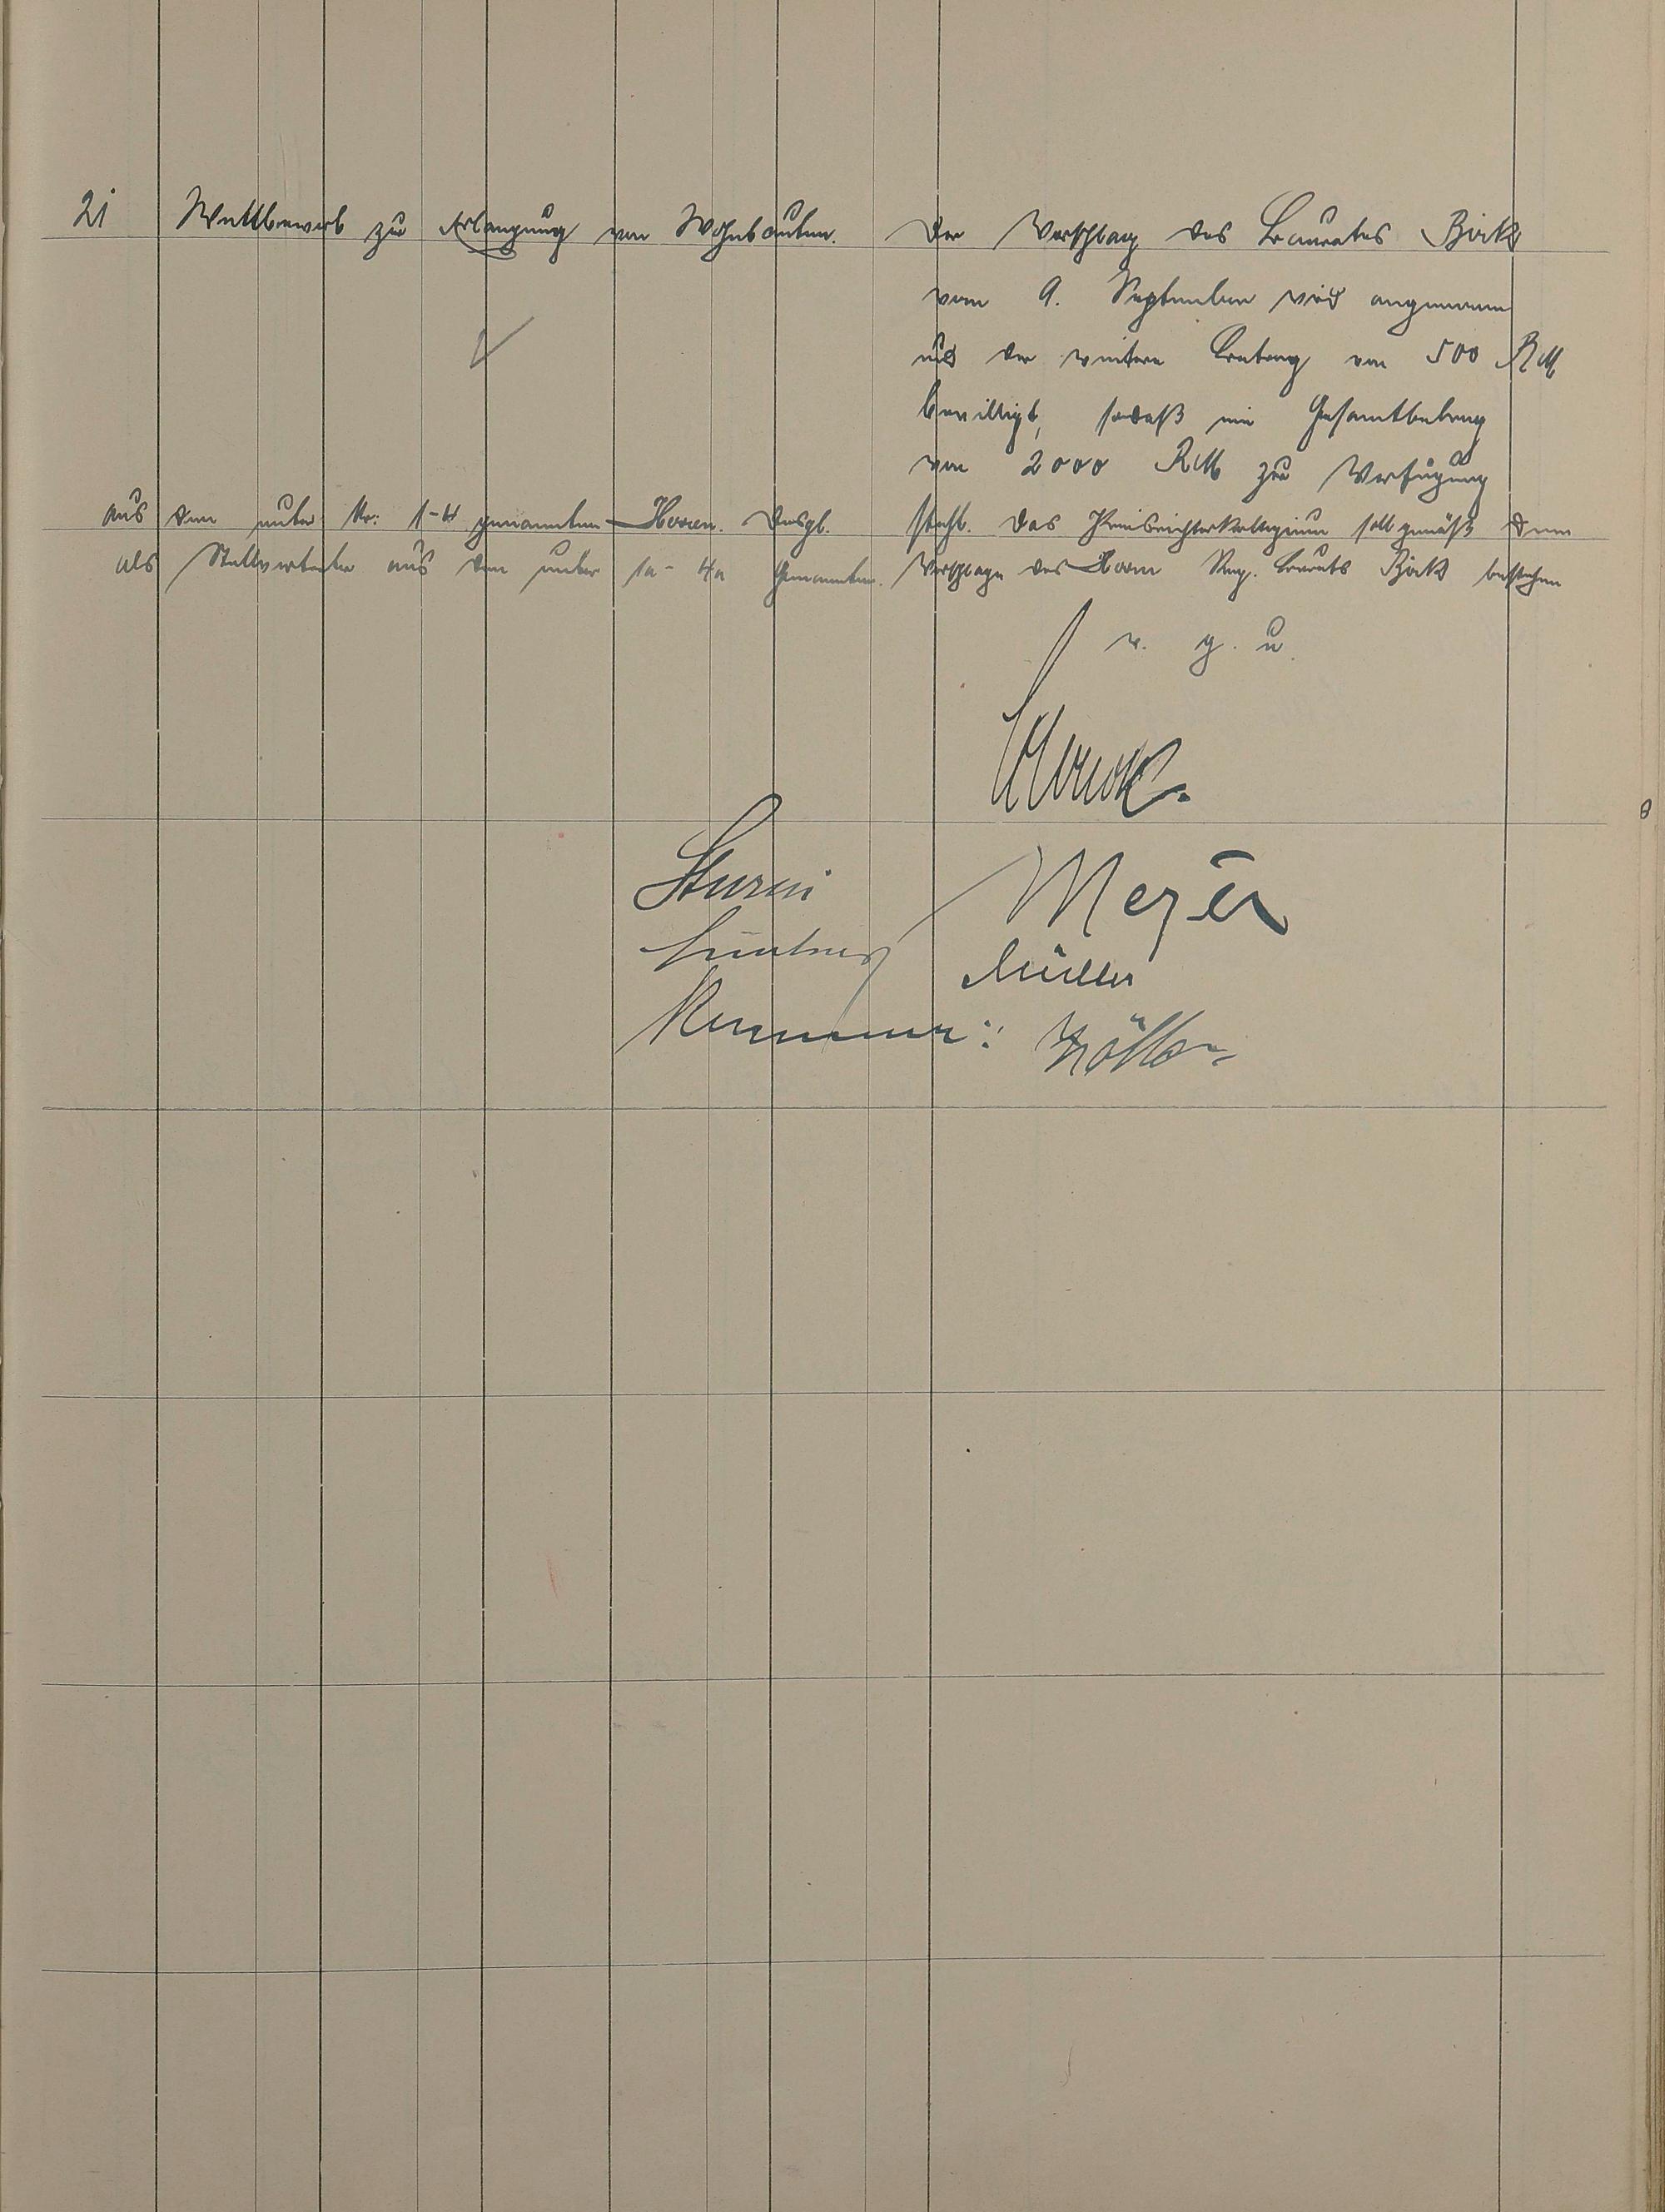 21 Wettbewerb zur Erlangung von Wohnbauten.
Der Vorschlag des Baurates Birk
vom 9. September wird angenommen
und der weitere Betrag von 500 RM
bewilligt, sodaß ein Gesamtbetrag
von 2000 RM zur Verfügung
steht. Das Preisrichterkollegium soll gemäß dem
Vorschlage des Herrn Reg. Baurats Birk bestehen
aus den unter Nr: 1-4 genannten Herren. Desgl.
als Stellvertreter aus den unter 1a-4a Genannten.
v. g. u.
Sturm
Meyer
Müller